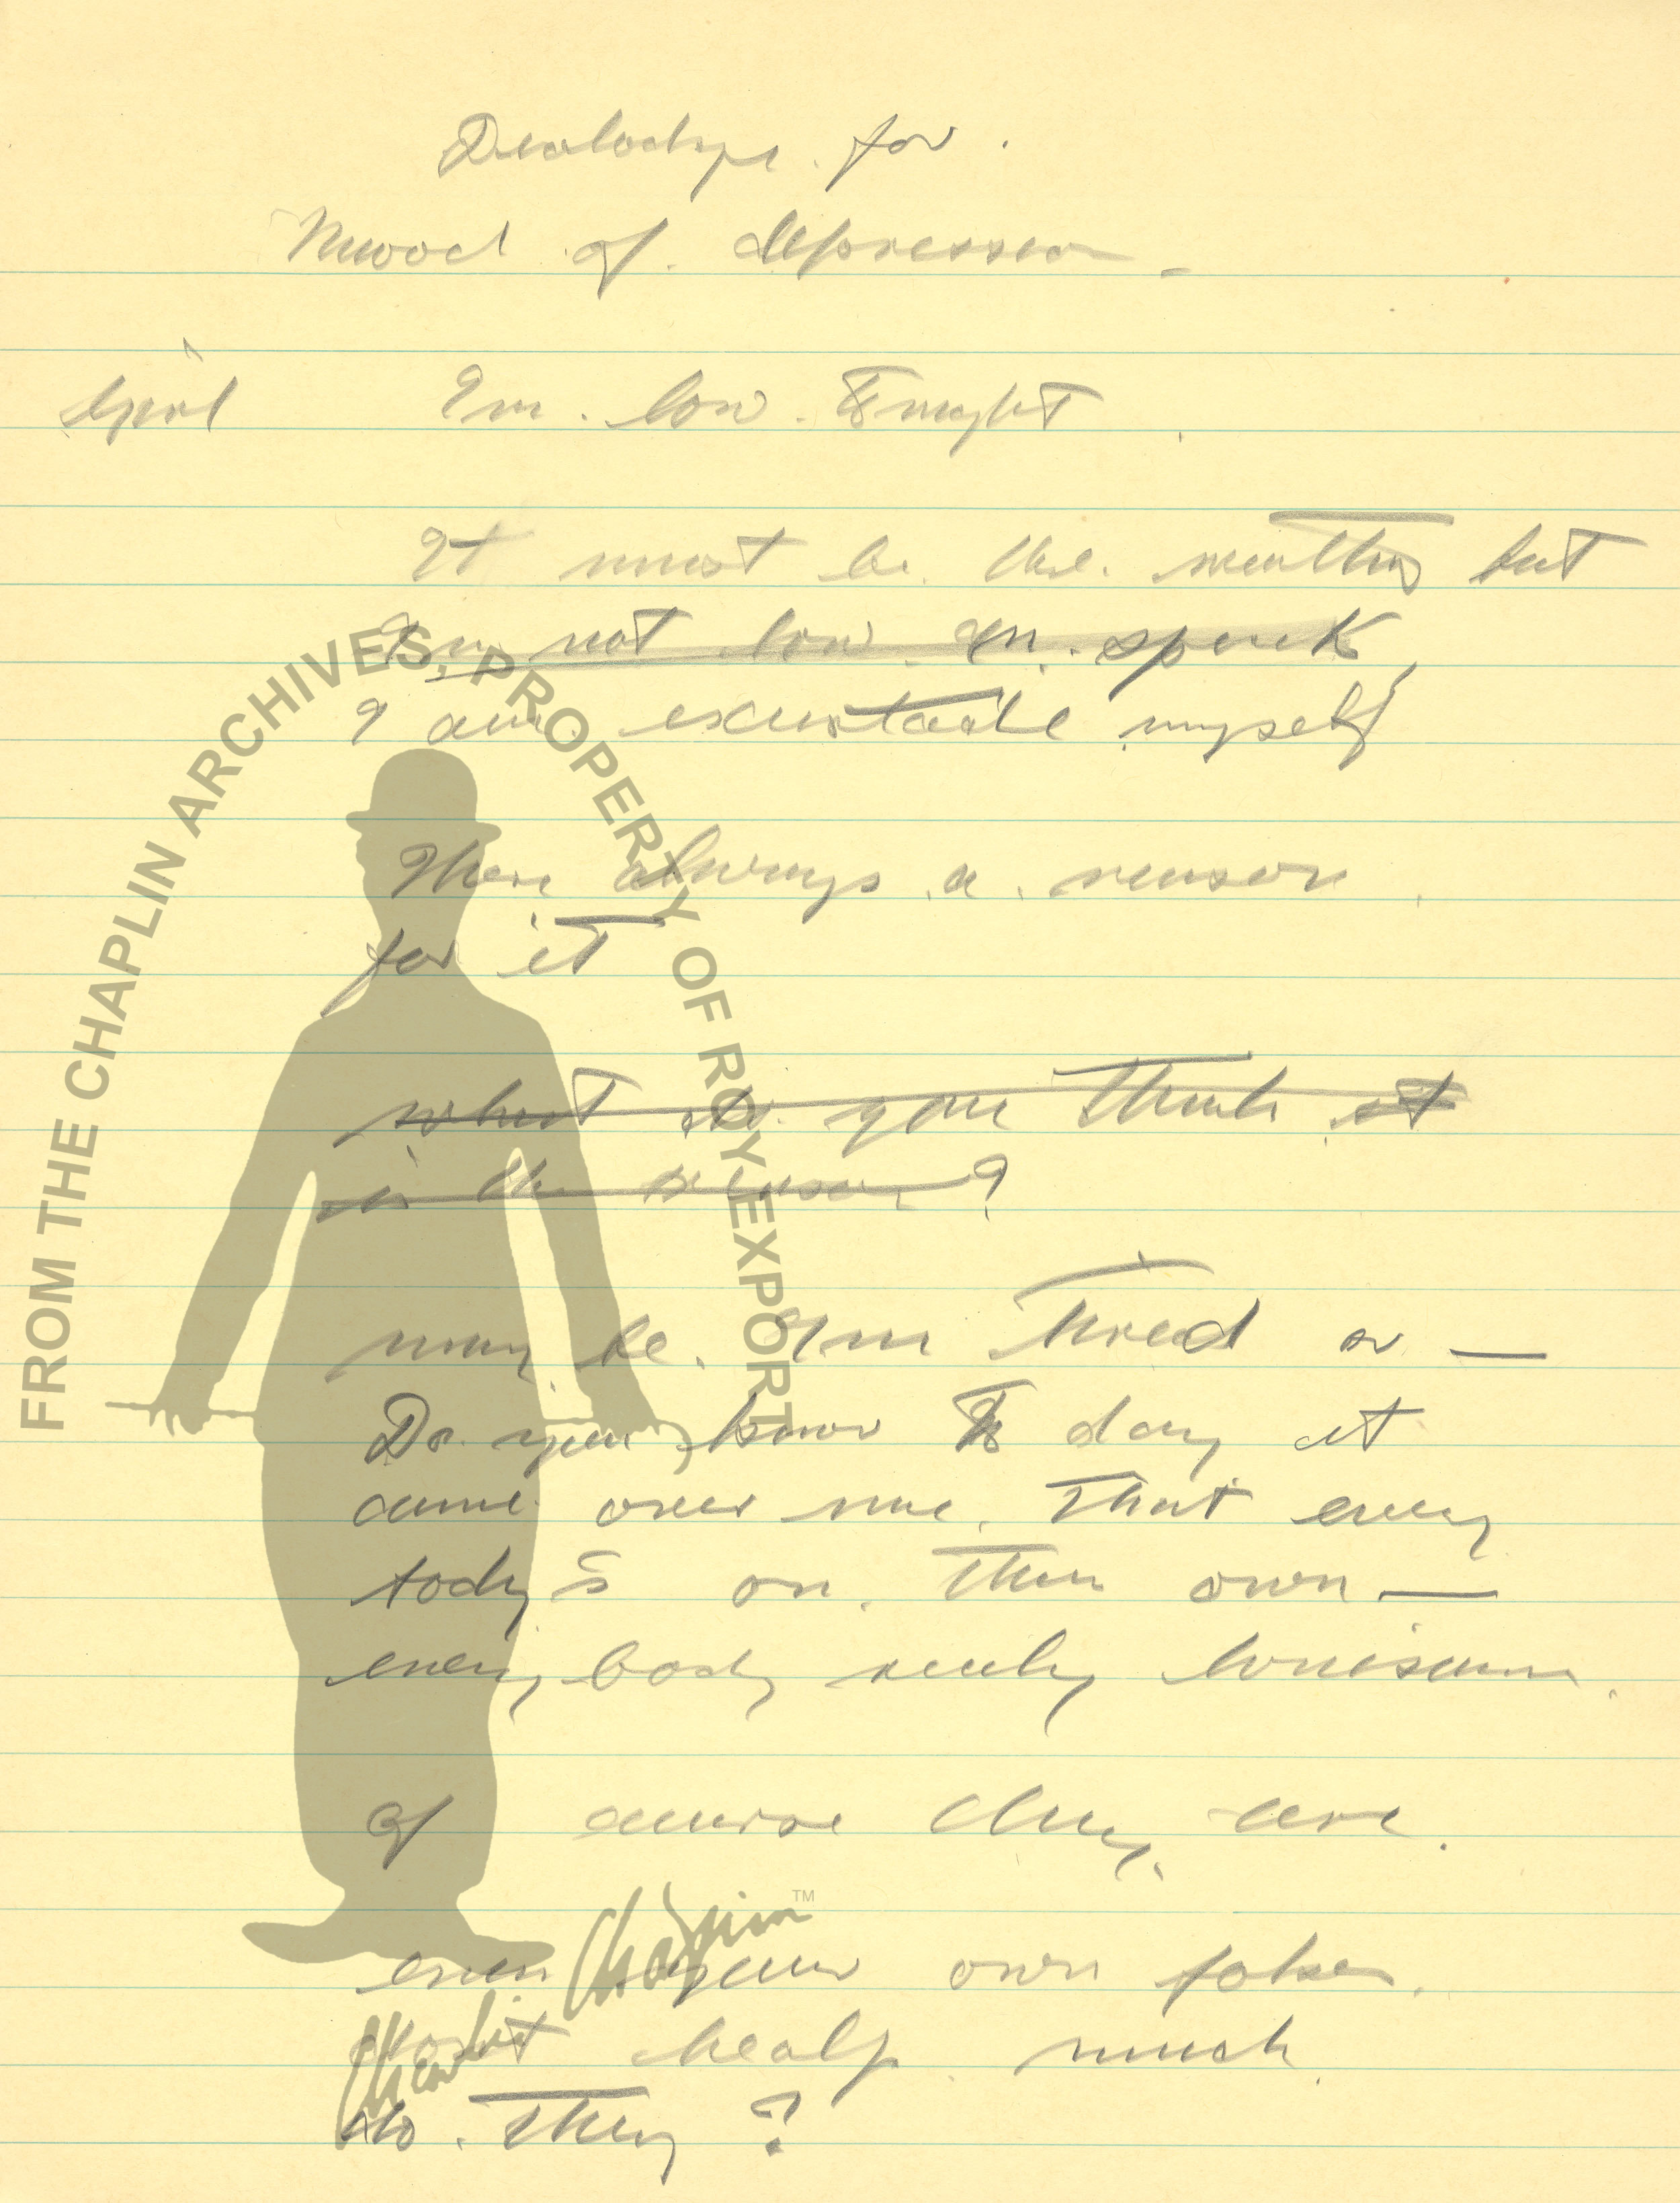 Dialodge for
Mood of depression -
April I'm low tonight
It must be the weather but
I'm not low in spirit,
I am excitable myself
There always a reason
for it
what do you think it
is the reason?
may be I'm tired or —
Do you know to day it
came over me that every
body's on their own —
every body realy lonisum.
of course they are.
even your own folks.
dont healp much
do they?
FROM THE CHAPLIN ARCHIVES, PROPERTY OF ROY EXPORT
Charlie Chaplin TM